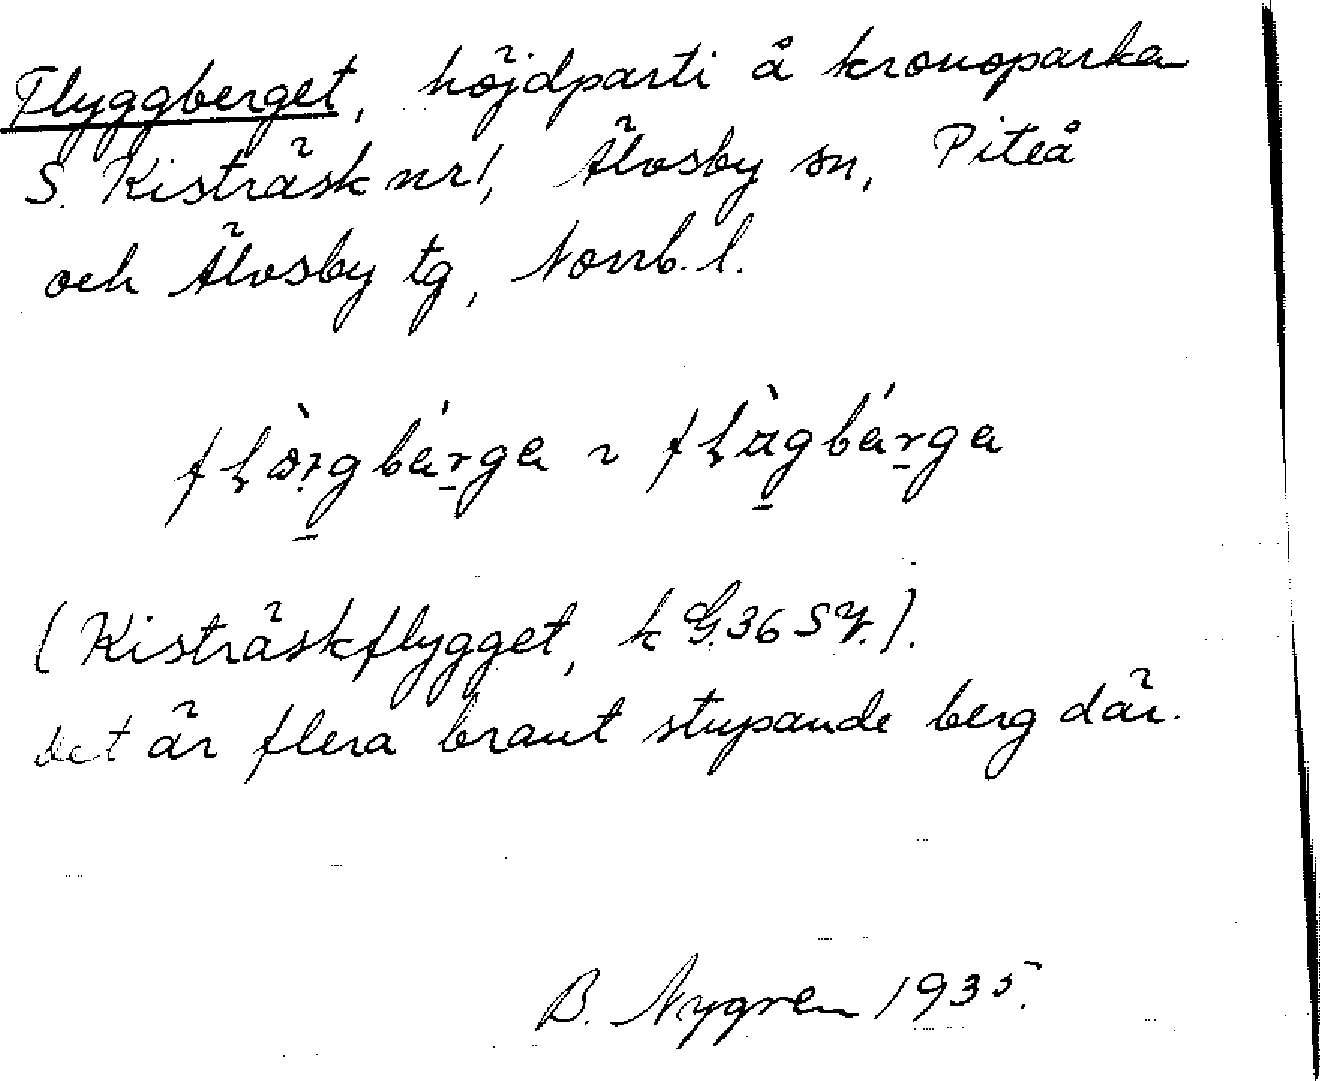 Flyggberget, höjdparti å kronoparka
S. Kisträsk nr 1, Älvsby sn, Piteå
och Älvsby tg, Norrb. l.
(Kisträskflygget, k G. 36 SY.).
det är flera brant stupande berg där.
B. Nygren 1935.